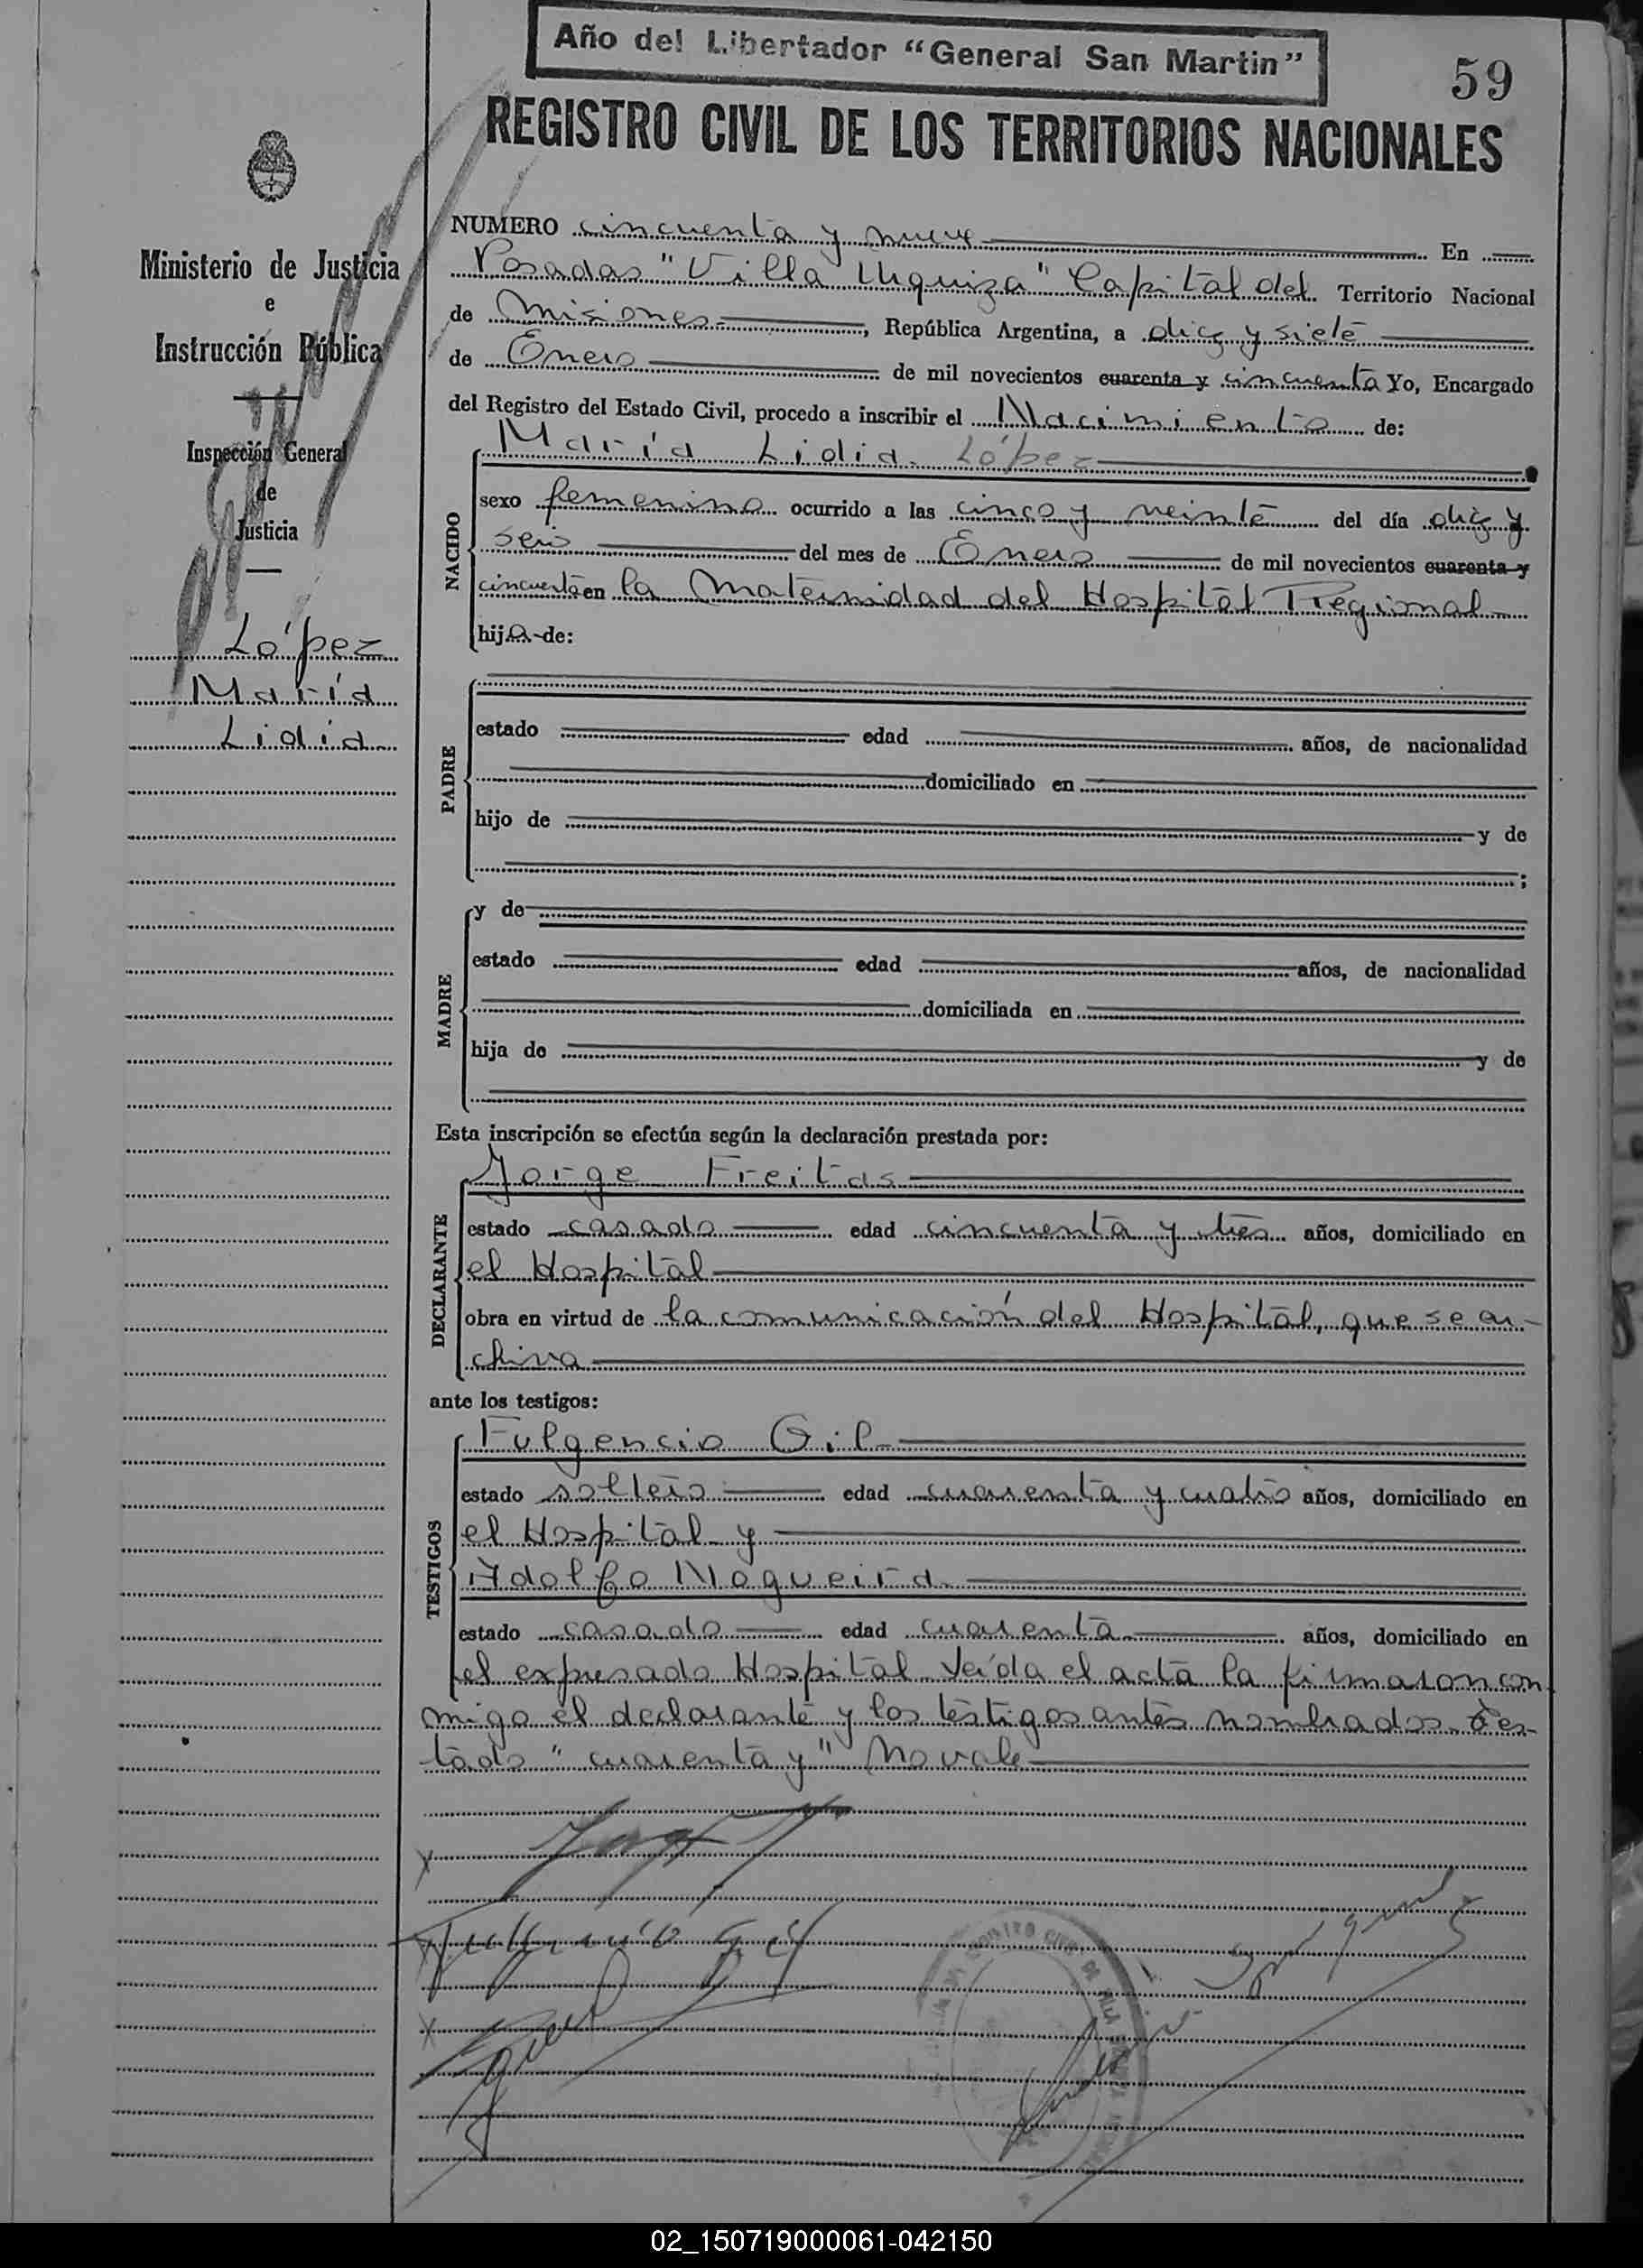 Año del Libertador “General San Martin”
59
REGISTRO CIVIL DE LOS TERRITORIOS NACIONALES
Ministerio de Justicia
e
Instrucción Pública
Inspección General
de
Justicia
López
María
Lidia
NUMERO cincuenta y nueve En
Posadas "Villa Urquiza" Capital del Territorio Nacional
de Misiones, República Argentina, a diez y siete
de Enero de mil novecientos cuarenta y cincuenta Yo, Encargado
del Registro del Estado Civil, procedo a inscribir el Nacimiento de:
NACIDO
María Lidia López
sexo femenino ocurrido a las cinco y veinte del día diez y
seis del mes de Enero de mil novecientos cuarenta y
cincuenta en la Maternidad del Hospital Regional
hija de:
PADRE
estado edad años, de nacionalidad
domiciliado en
hijo de y de
;
MADRE
y de
estado edad años, de nacionalidad
domiciliada en
hija de y de
Esta inscripción se efectúa según la declaración prestada por:
DECLARANTE
Jorge Freitas
estado casado edad cincuenta y tres años, domiciliado en
el Hospital
obra en virtud de la comunicación del Hospital, que se ar-
chiva
ante los testigos:
TESTIGOS
Fulgencio Gil
estado soltero edad cuarenta y cuatro años, domiciliado en
el Hospital y
Adolfo Nogueira
estado casado edad cuarenta años, domiciliado en
el expresado Hospital Leída el acta la firmaron con
migo el declarante y los testigos antes nombrados. Tes-
tado "cuarenta y" No vale
Fulgencio Gil
02_150719000061-042150